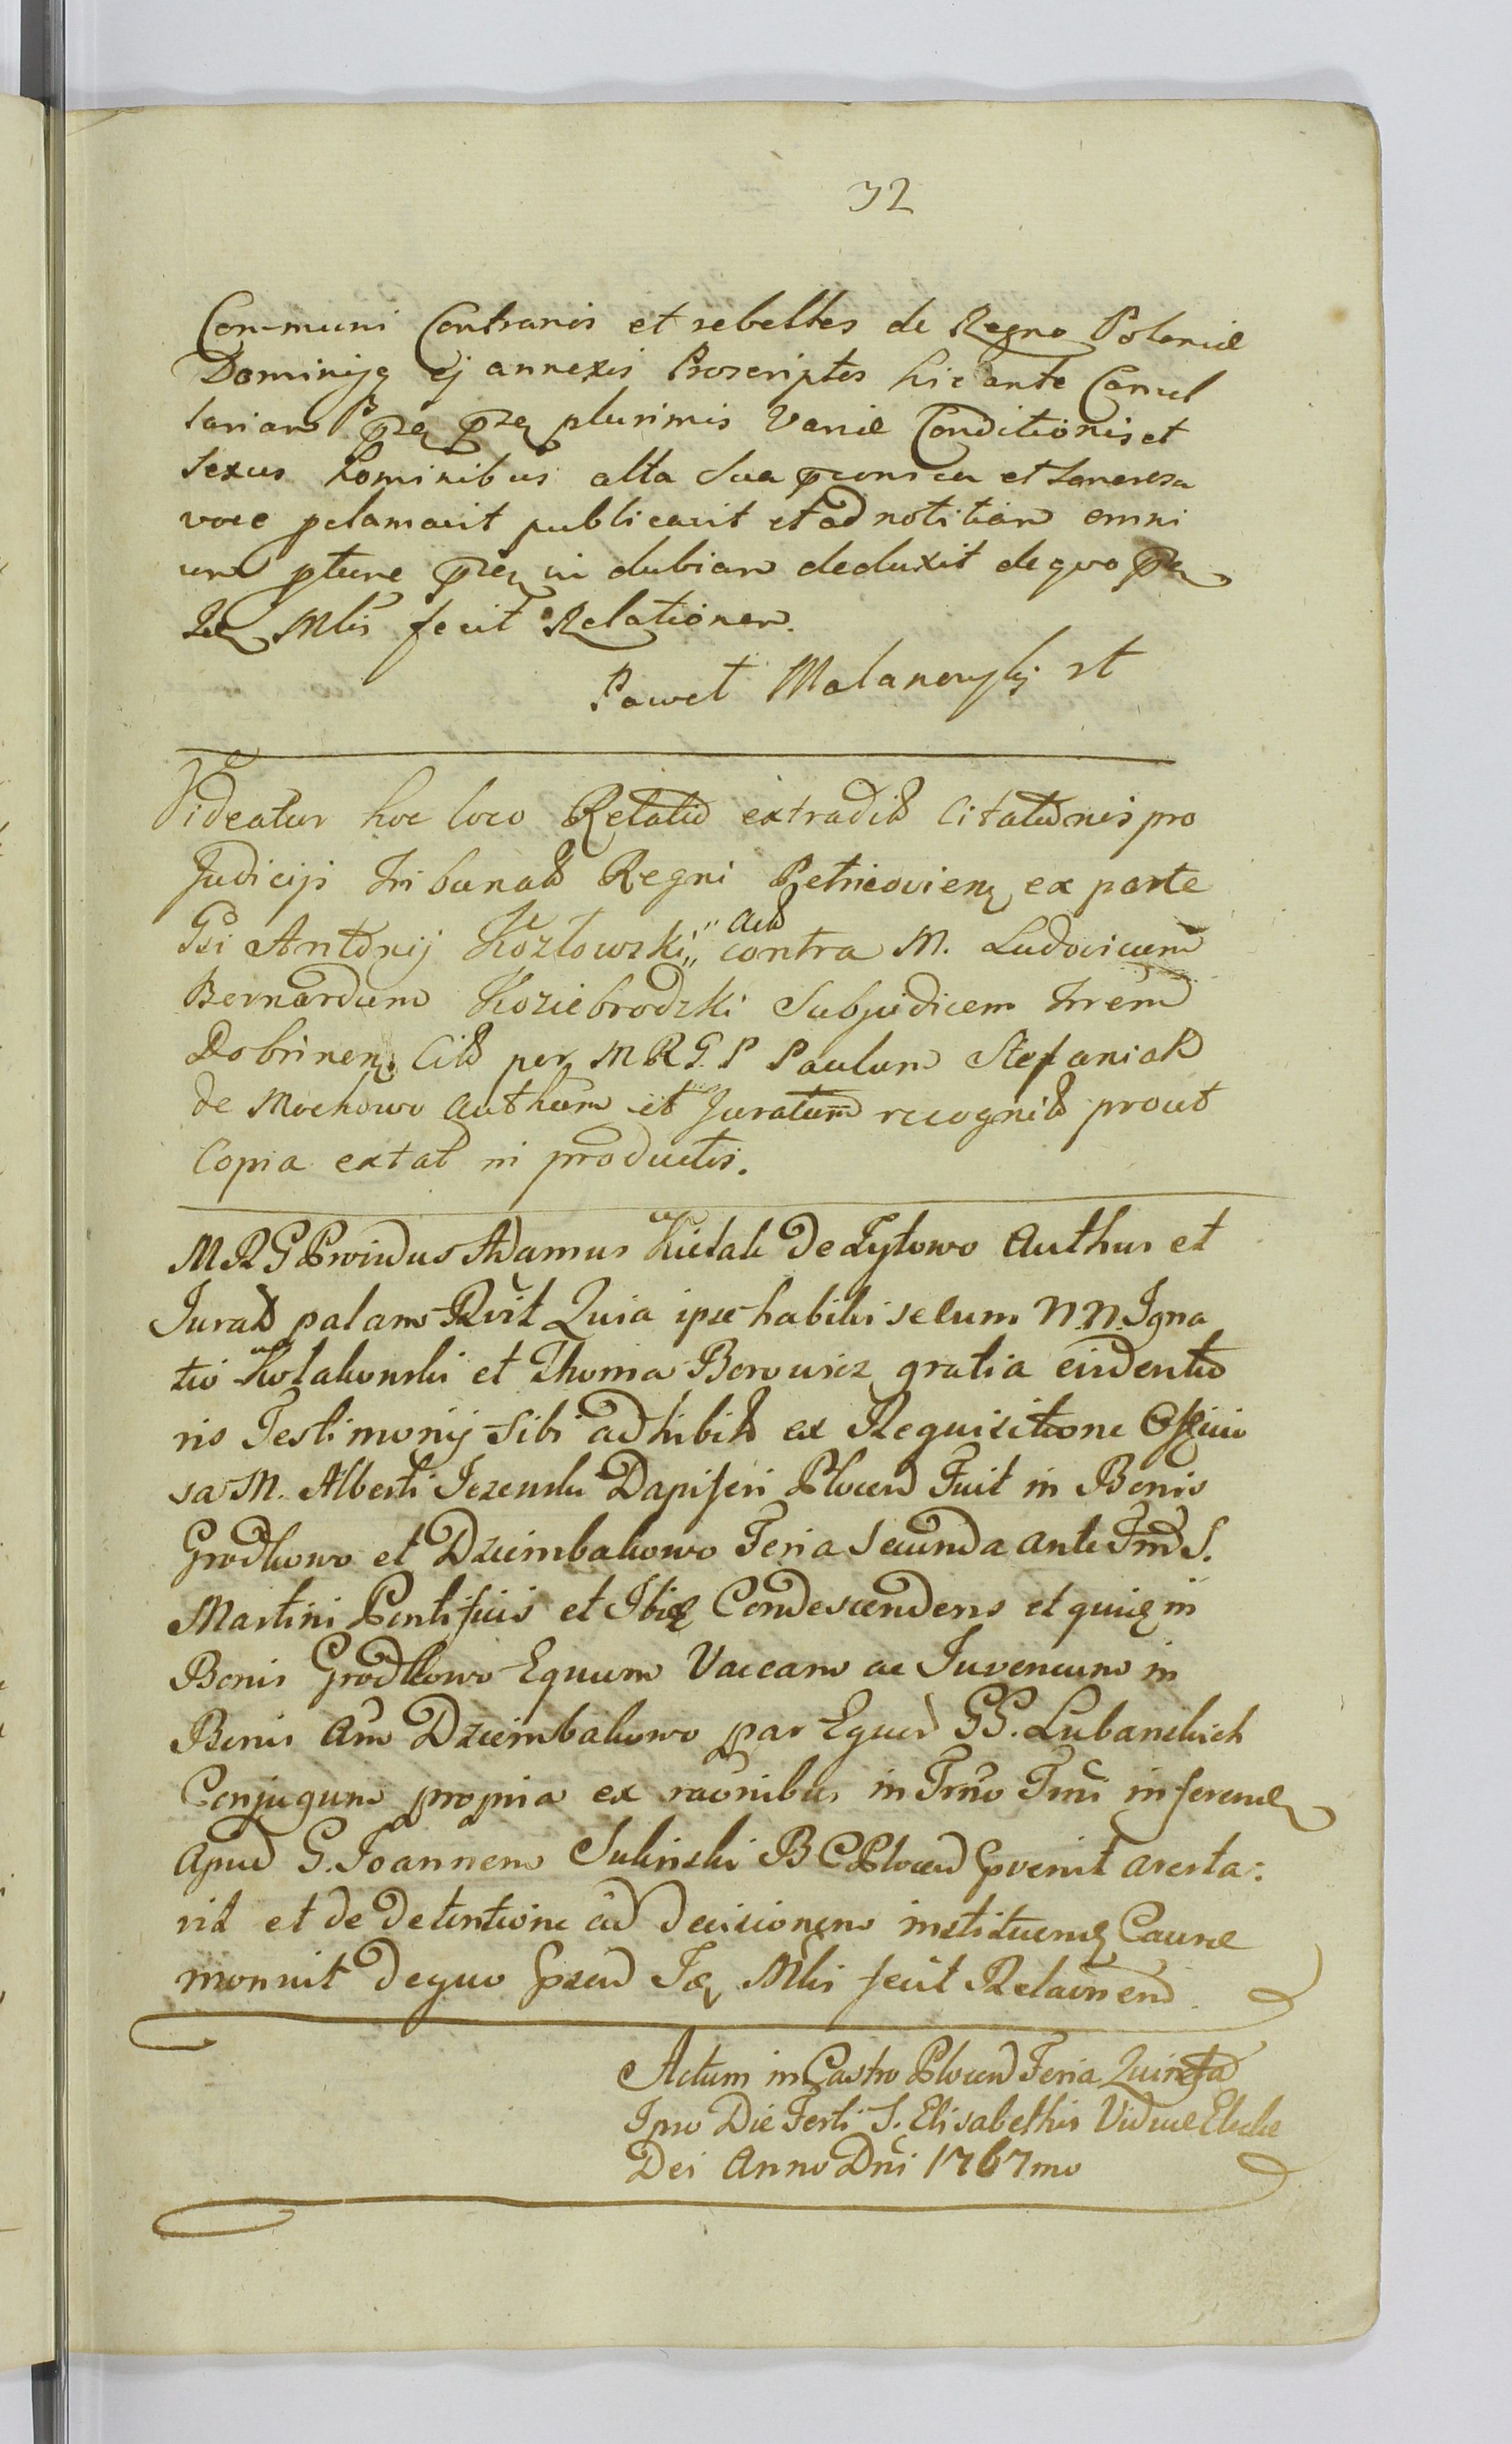 32
Communi Contrarios et rebelles de Regno Poloniæ
Dominijq ej annexis Proscriptos hic ante Cancel
lariam plurimis Variæ Conditionis et
Sexus hominibus alta Sua et Sonorosa
voce pclamavit publicavit et ad notitiam omni
um deduxit de quo
Mlis fecit Relationem.
Paweł Malanowskj
Videatur hoc loco Relatio extradit Citationis pro
Judicijs Tribunal Regni Petricovien ex parte
Gsi Antonij Kozłowski Act contra M. Ludovicum
Bernardum Koziebrodzki Subjudicem Trrem
Dobrinen Cit per M R G. P Paulum Stefaniak
de Mochowo Authum et Juratum recognit prout
Copia extat in productis.
M R G Pvidus Adamus de Łytowo Authus et
Jurat palam Rvit Quia ipse habitis secum N. N. Igna
tio Kołakowski et Thoma Borowicz gratia evidentio
ris Testimonij Sibi adhibit ex Requisitione Officio
sa M. Alberti Jezewski Dapiferi Plocen Fuit in Bonis
Grodkowo et Dziembakowo Feria Secunda ante Fm S.
Martini Pontificis et Ibiq Condescendens et quiq in
Bonis Grodkowo Equum Vaccam ac Juvencum in
Bonis Am Dziembakowo par Equor GG. Lubanskich
Conjugum propria ex raonibus in Trno Tmi inferend
Apud G. Joannem Sulinski B C Plocen pvenit aresta:
vit et de detentione ad decisionem instituend Causæ
monuit de quo Mlis fecit Relaonem.
Actum in Castro Plocen Feria Quinta
Ipso Die Festi S. Elisabethis Viduæ Electæ
Dei Anno Dni 1767mo